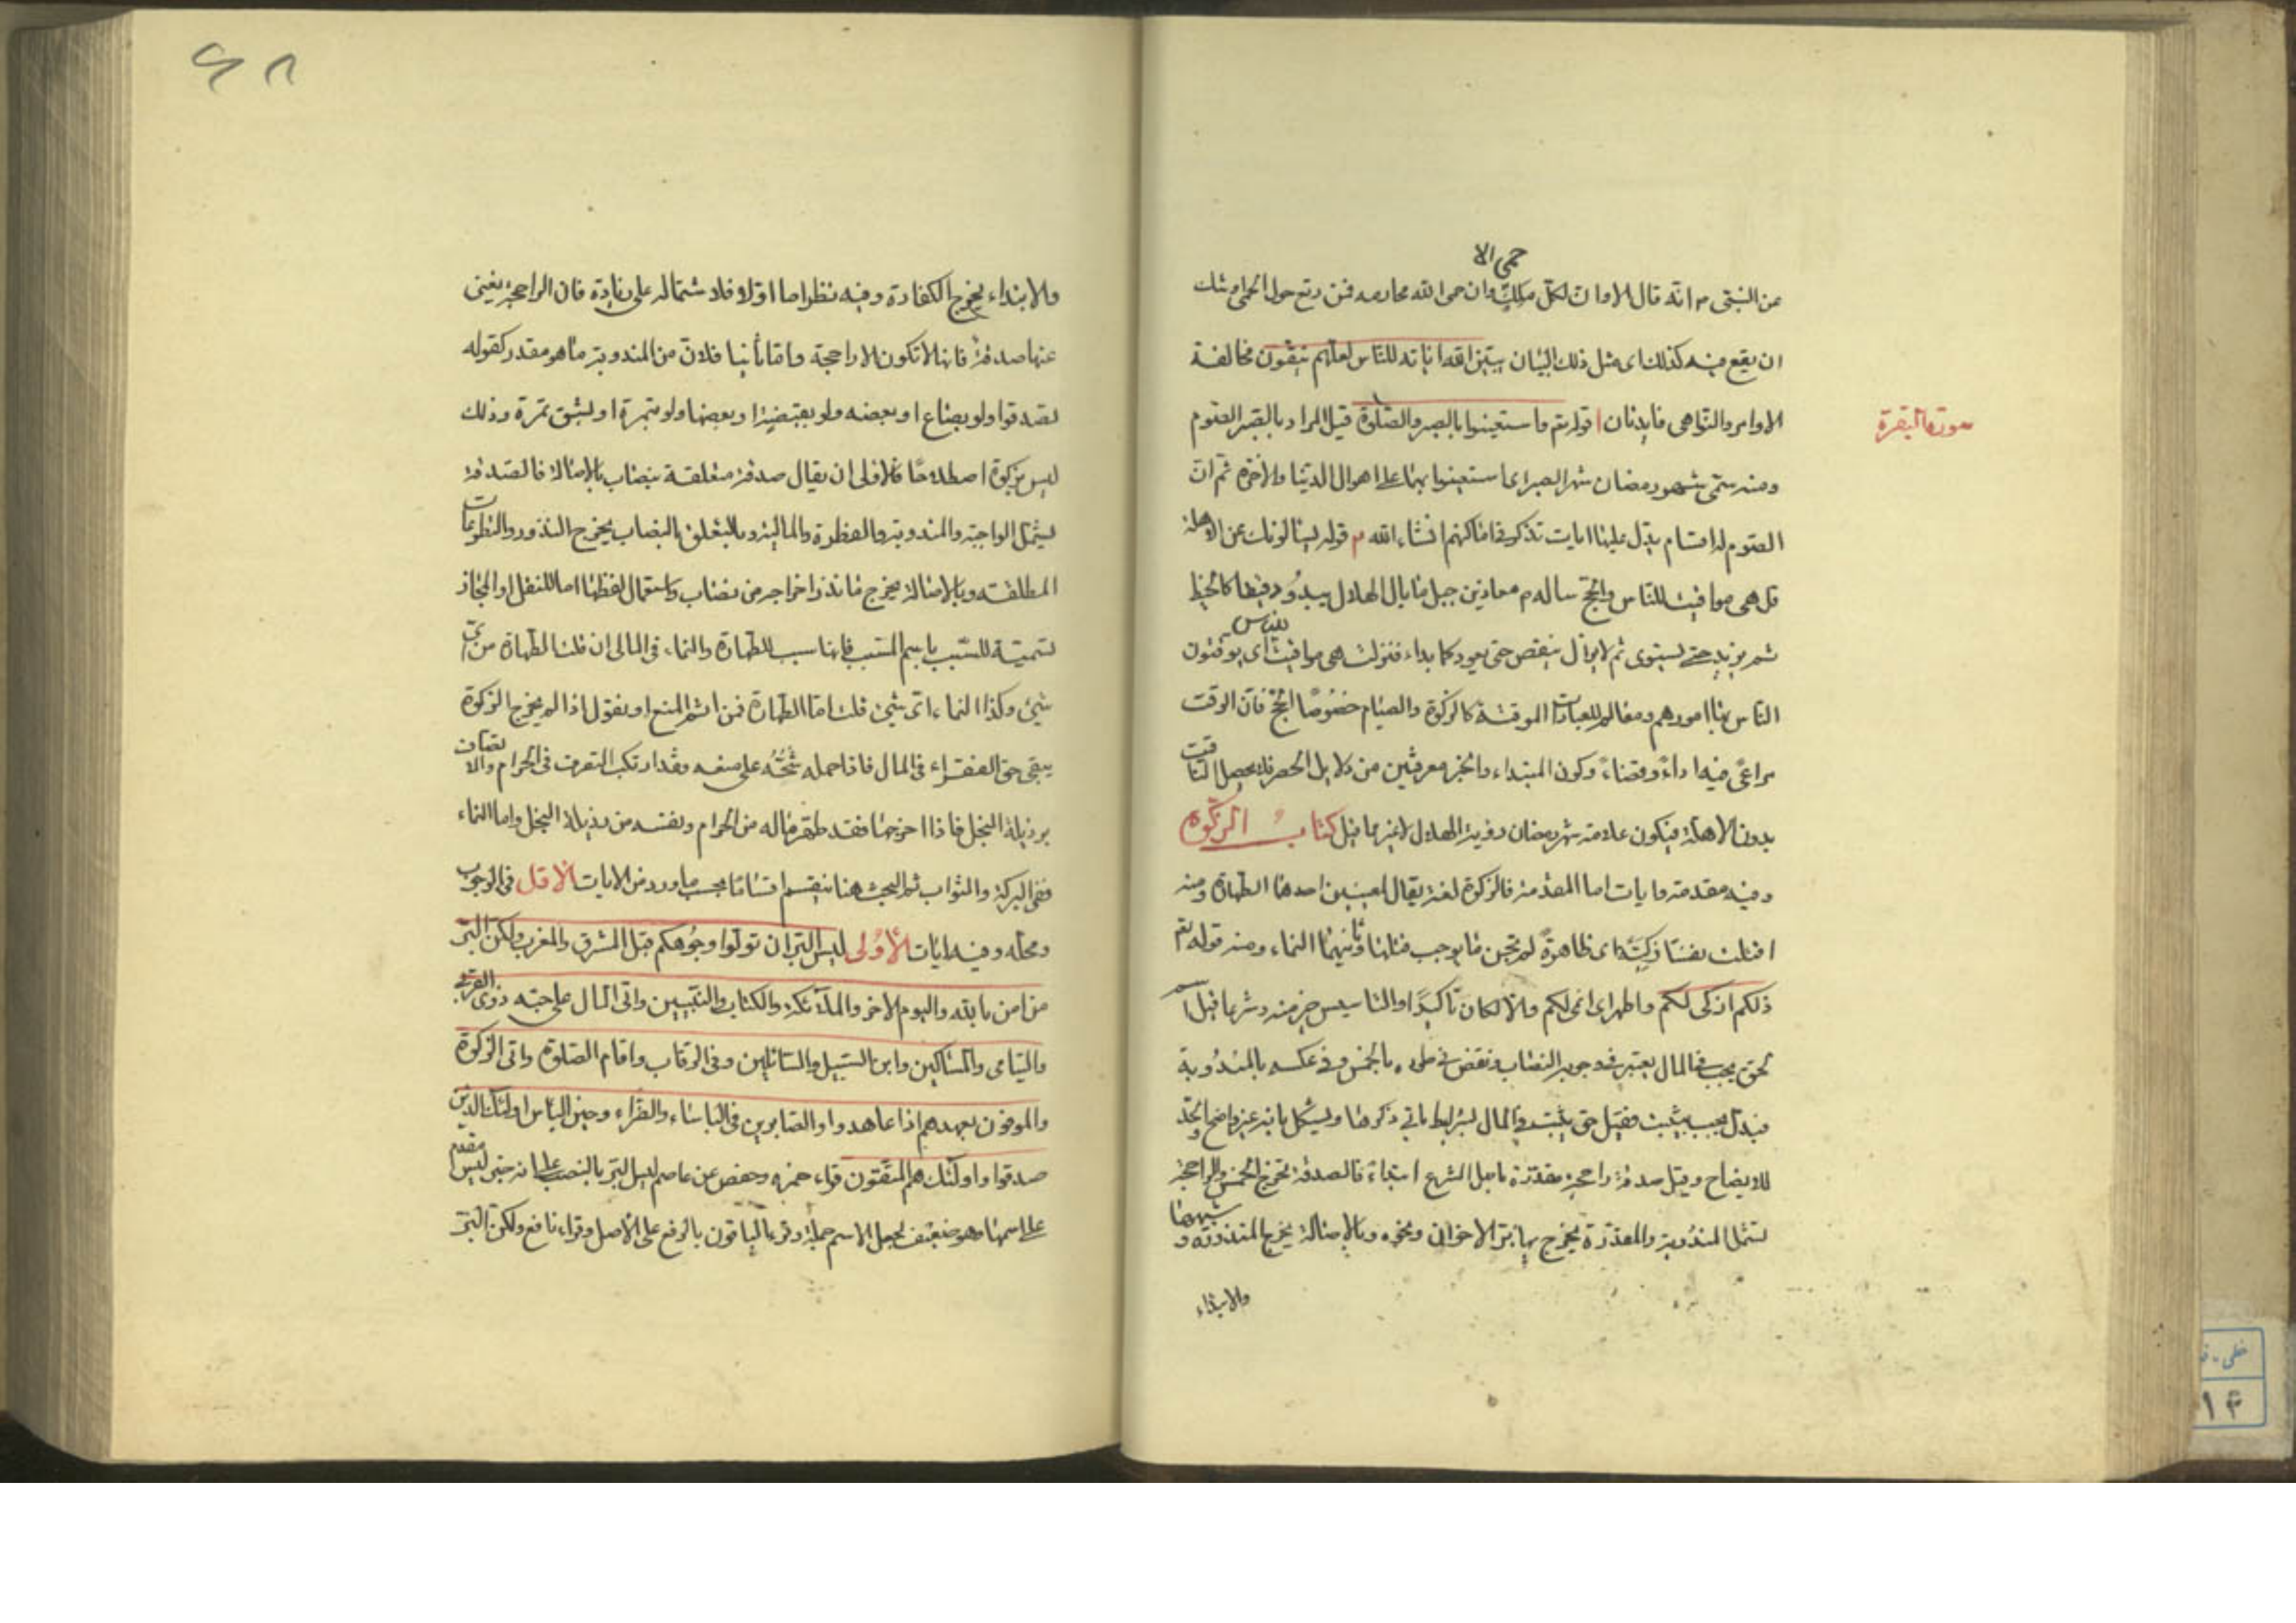 حمى الا
عن النبى م انه قال الا وان لكل ملك وان حمى الله محارمه فمن رتع حول الحمى اوشك
ان يقع فيه كذلك اى مثل ذلك البيان يبين الله اياته للناس لعلهم يتقون مخالفة
الاوامر والنواهى فايدتان ا قوله تع واستعينوا بالصبر والصلوة قيل المراد بالصبر الصوم
سورة البقرة
ومنه سمى شهر رمضان شهر الصبر اى استعينوا بهما على اهوال الدنيا والاخرة ثم ان
الصوم له اقسام يدل عليها ايات تذكر فى اماكنهم انشاء الله م قوله يسالونك عن الاهلة
قل هى مواقيت للناس والحج ساله م معاذ بن جبل ما بال الهلال يبدو دقيقا كالخيط
ثم يزيد حتى يستوى ثم لا يزال ينقص حتى يعود كما بداء فنزلت هى مواقيت للناس اى يوقتون
الناس بها امورهم ومعالم للعبادات الموقتة كالزكوة والصيام خصوصا الحج فان الوقت
مراعى فيه اداء وقضاء وكون المبتداء والخبر معرفتين من دلايل الحصر فلا يحصل التاقيت
بدون الاهلة فيكون علامة شهر رمضان رؤية الهلال لا غير مما قيل كتاب الزكوة
وفيه مقدمة وايات اما المقدمة فالزكوة لغة يقال لمعنيين احدهما الطهارة ومنه
اقتلت نفسا زكية اى طاهرة لم تجن ما يوجب قتلها وثانيهما النماء ومنه قوله تع
ذلكم ازكى لكم واطهر اى انمى لكم والا لكان تاكيدا والتاسيس خير منه وشرعا قيل اسم
لحق يجب فى المال يعتبر فى وجوبه النصاب ونقض فى طرده بالخمس وفى عكسه بالمندوبة
فبدل يجب بيثبت فقيل حق يثبت فى المال بشرايط ياتى ذكرها ويشكل بانه غير واضح والحد
للايضاح وقيل صدقة راجحة مقدرة باصل الشرع ابتداء فالصدقة تخرج الخمس والراجحة
تشمل المندوبة والمقدرة يخرج بها بر الاخوان ونحوه وبالاصالة يخرج المنذورة وشبهها
والابتداء
والابتداء يخرج الكفارة وفيه نظر اما اولا فلاشتماله على زيادة فان الراجحة يغنى
عنها صدقة فانها لا تكون الا راجحة واما ثانيا فلان من المندوبة ما هو مقدر كقوله
تصدقوا ولو بصاع او بعضه ولو بقبضة او بعضها ولو بتمرة او بشق تمرة وذلك
ليس بزكوة اصطلاحا فالاولى ان يقال صدقة متعلقة بنصاب بالاصالة فالصدقة
يشمل الواجبة والمندوبة والفطرة والمالية وبالتعلق بالنصاب يخرج النذور والتطوعات
المطلقة وبالاصالة يخرج ما نذر اخراجه من نصاب واستعمال لفظها اما للنقل او المجاز
تسمية للسبب باسم المسبب فانها سبب للطهارة والنماء فى المال ان قلت الطهارة من اى
شئ وكذا النماء اى شئ قلت اما الطهارة فمن اثم المنع او نقول اذا لم يخرج الزكوة
يبقى حق الفقراء فى المال فاذا حمله شحه على منعه فقد ارتكب التصرف فى الحرام والاتصاف
برذيلة البخل فاذا اخرجها فقد طهر ماله من الحرام ونفسه من رذيلة البخل واما النماء
ففى البركة والثواب ثم البحث هنا ينقسم اقساما بحسب ما ورد من الايات الاول فى الوجوب
ومحله وفيه ايات الاولى ليس البر ان تولوا وجوهكم قبل المشرق والمغرب ولكن البر
من امن بالله واليوم الاخر والملائكة والكتاب والنبيين واتى المال على حبه ذوى القربى
واليتامى والمساكين وابن السبيل والسائلين وفى الرقاب واقام الصلوة واتى الزكوة
والموفون بعهدهم اذا عاهدوا والصابرين فى الباساء والضراء وحين الباس اولئك الذين
صدقوا واولئك هم المتقون قراء حمزه وحفص عن عاصم ليس البر بالنصب على انه خبر ليس مقدم
على اسمها وهو ضعيف لجعل الاسم جملة وقرء الباقون بالرفع على الاصل وقراء نافع ولكن البر